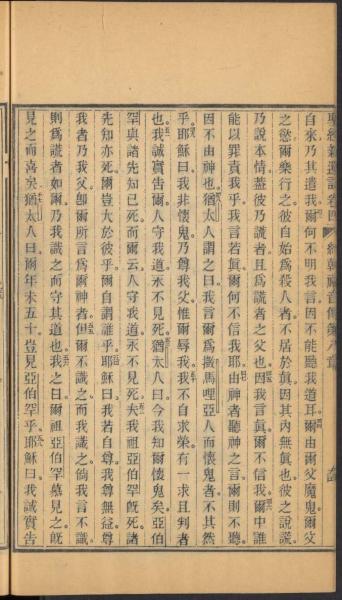 聖經新遺詔卷四 約翰福音傳第八章
自來乃其遣我爾何不明我言因不能聽我道耳爾由爾父魔鬼爾父
之慾爾樂行之彼自始為殺人者不居於眞因其內無眞也彼之說謊
乃說本情蓋彼乃謊者且爲謊者之父也因我言眞爾不信我爾中誰
能以罪責我乎我言若眞爾何不信我耶由神者聽神之言爾則不聽
因不由神也猶太人謂之曰我言爾爲撒馬哩亞人而懷鬼者不其然
乎耶穌曰我非懷鬼乃尊我父惟爾辱我我不自求榮有一求且判者
也我誠實告爾人守我道永不見死猶太人曰今我知爾懷鬼矣亞伯
罕與諸先知已死而爾云人守我道永不見死夫我祖亞伯罕旣死諸
先知亦死爾豈大於彼乎爾自謂誰乎耶穌曰我若自尊我尊無益尊
我者乃我父卽爾所言爲爾神者但爾不識之而我識之倘我言不識
則爲謊者如爾乃我識之而守其道也我之曰爾祖亞伯罕慕見之旣
見之而喜矣猶太人曰爾年未五十豈見亞伯罕乎耶穌曰我誠實告